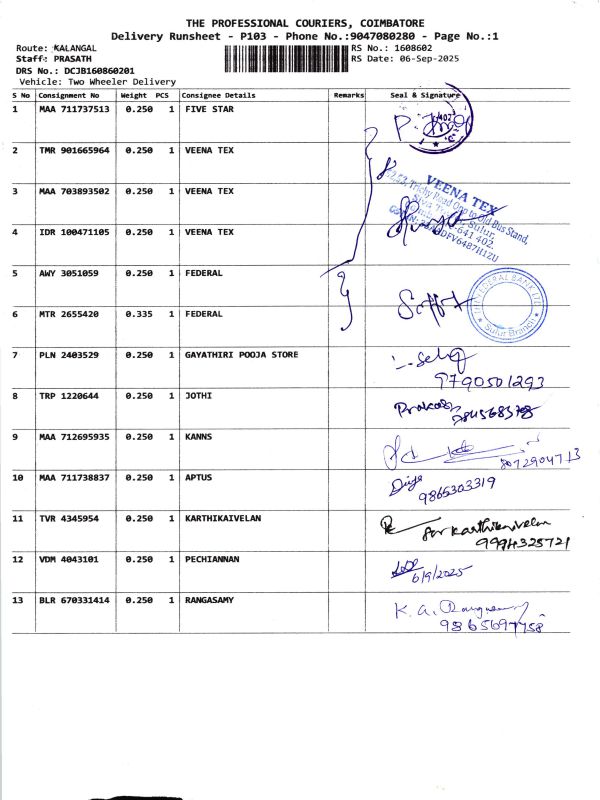 THE PROFESSIONAL COURIERS, COIMBATORE
Delivery Runsheet - P103 - Phone No.:9047080280 - Page No.:1
Route: KALANGAL RS No.: 1608602
Staff: PRASATH RS Date: 06-Sep-2025
DRS No.: DCJB160860201
Vehicle: Two Wheeler Delivery
S No Consignment No Weight PCS Consignee Details Remarks Seal & Signature
1 MAA 711737513 0.250 1 FIVE STAR
2 TMR 901665964 0.250 1 VEENA TEX
3 MAA 703893502 0.250 1 VEENA TEX
VEENA TEX
Trichy Road Opp to Old Bus Stand,
Sulur,
641 402.
4 IDR 100471105 0.250 1 VEENA TEX
5 AWY 3051059 0.250 1 FEDERAL
THE FEDERAL BANK LTD
Sulur Branch
6 MTR 2655420 0.335 1 FEDERAL
7 PLN 2403529 0.250 1 GAYATHIRI POOJA STORE
9790501293
8 TRP 1220644 0.250 1 JOTHI
Prakash
9 MAA 712695935 0.250 1 KANNS
8072904713
10 MAA 711738837 0.250 1 APTUS
Divya
9865303319
11 TVR 4345954 0.250 1 KARTHIKAIVELAN
for Karthikaivelan
9994325721
12 VDM 4043101 0.250 1 PECHIANNAN
6/9/2025
13 BLR 670331414 0.250 1 RANGASAMY
K. A. Rangasamy
9865697758